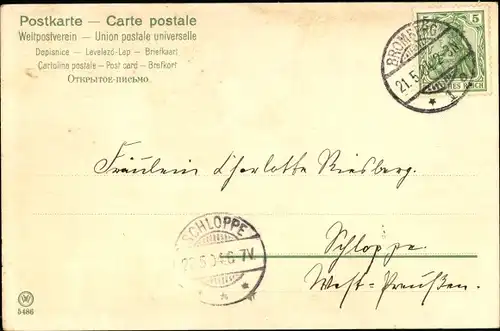 Postkarte — Carte postale
Weltpostverein — Union postale universelle
Dopisnice — Levelező-Lap — Briefkaart
Cartolina postale — Post card — Brefkort
Открытое-письмо
5 5
BROMBERG
21.5.
1
DEUTSCHES REICH
Fräulein Charlotte Riesberg.
SCHLOPPE
5.04.6-7V.
Schloppe.
West-Preußen.
W
5486